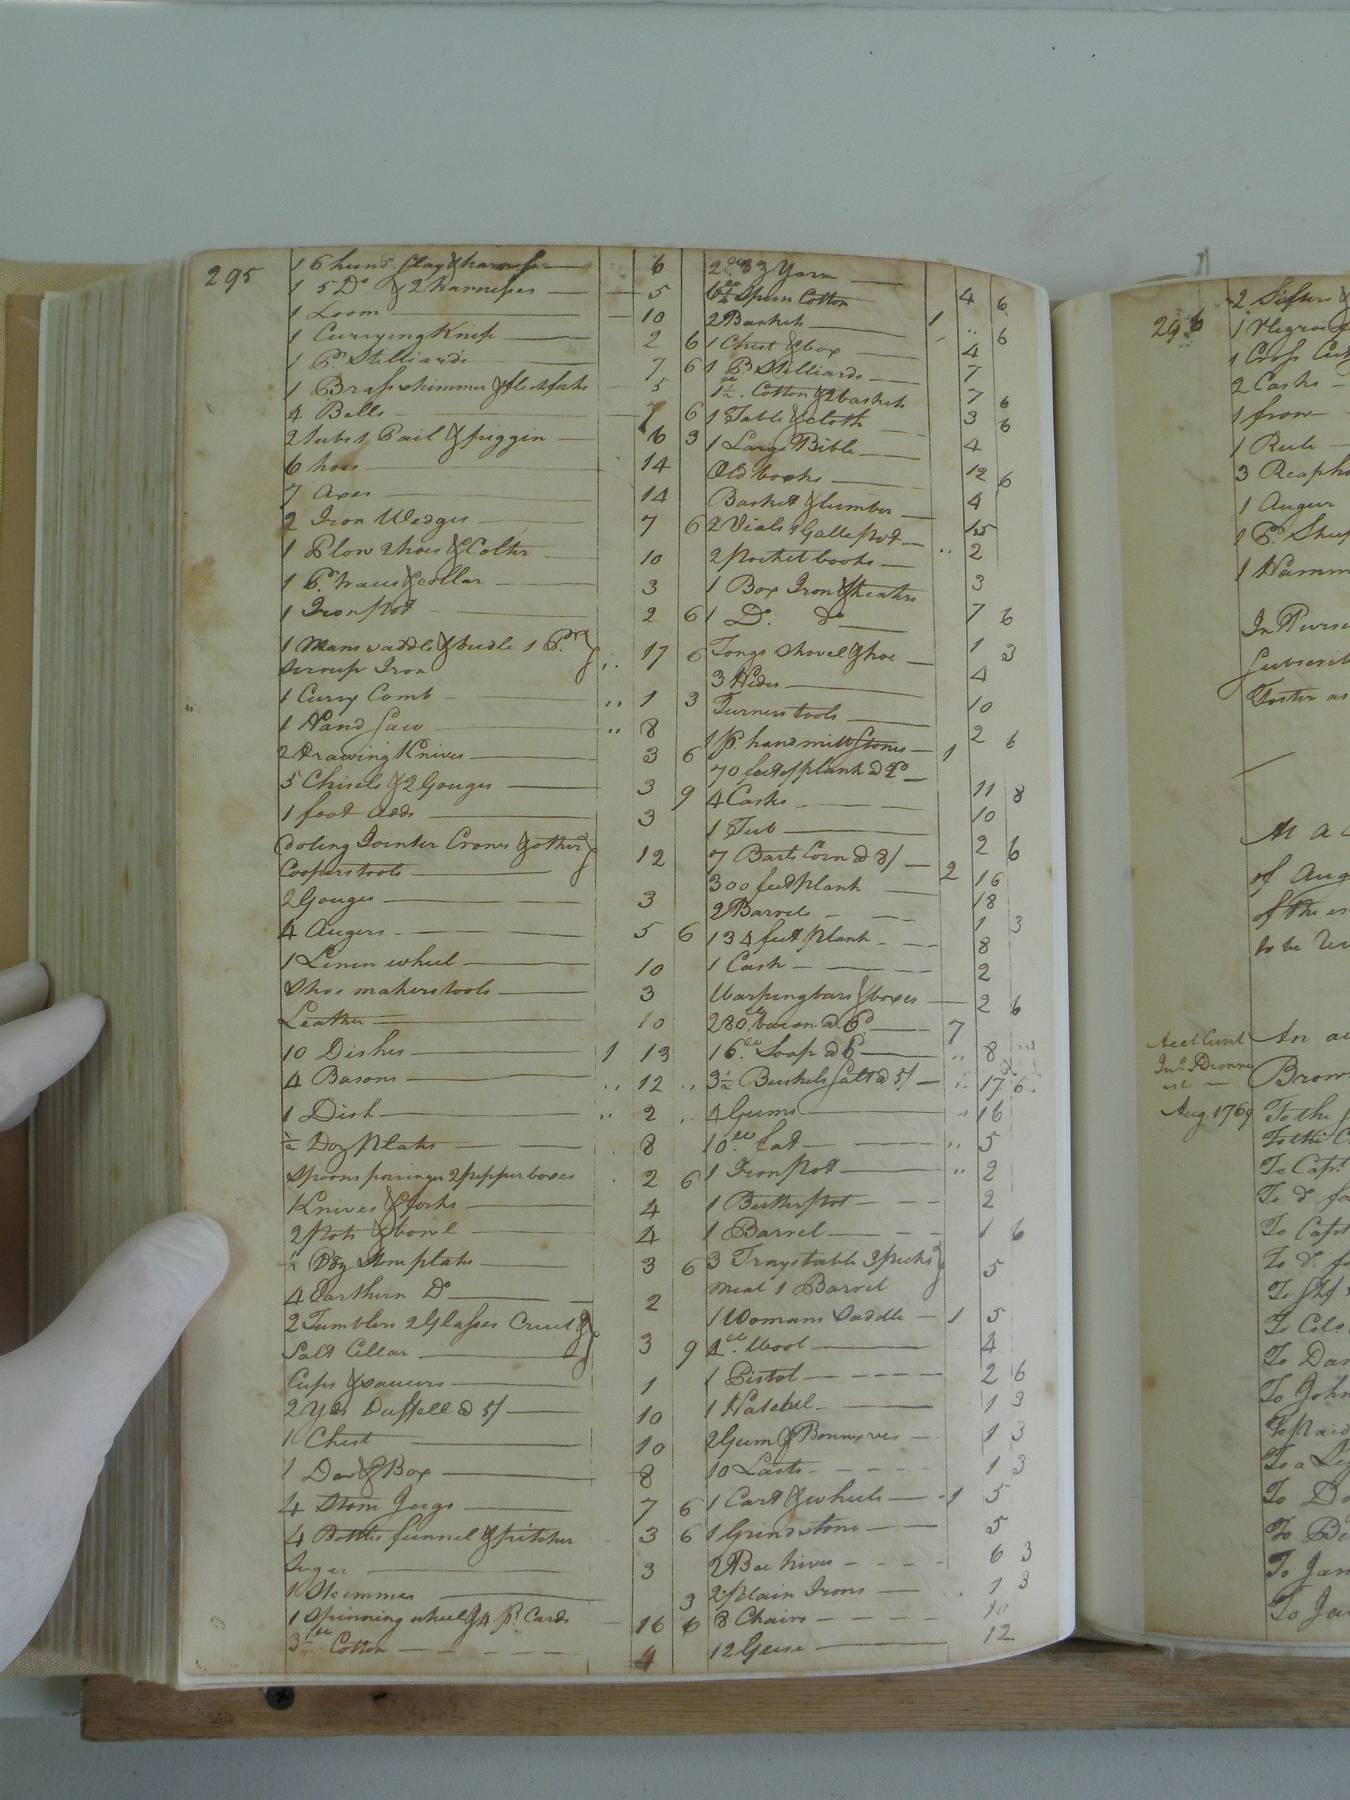 295
1 6 hund. Slay & harness 6
1 5 Do & 2 harneses 5
1 Loom 10
1 Currying Knife 2 6
1 Pr Stilliards 7 6
1 Brass skimmer & flesh fork 5
4 Bells 7 6
2 tubs 1 Pail & piggin 6 3
6 hoes 14
7 Axes 14
2 Iron Wedges 7 6
1 Plow 2 hoes & Colter 10
1 Pr haus & collar 3
1 Iron pot 2 6
1 Mans saddle & bridle 1 Pr
Stirrup Iron 17 6
1 Curry Comb 1 3
1 Hand Saw 8
2 Drawing Knives 3 6
5 Chisels & 2 Gouges 3 9
1 foot adds 3
Doling Jointer Crows & other
Coopers tools 12
2 Gouges 3
4 Augers 5 6
1 Linen wheel 10
Shoe makers tools 3
Leather 10
10 Dishes 1 13
4 Basons 12
1 Dish 2
½ Doz plats 8
Spoons poringer 2 pepper boxes 2 6
Knives & forks 4
2 pots & bowl 4
½ Doz Stone plats 3 6
4 Earthern Do 2
2 Tumblers 2 Glasses Cruet &
Salt Cellar 3 9
Cups & saucers 1
2 yds Duffell @ 5/ 10
1 Chest 10
1 Do & Box 8
4 Stone Jugs 7 6
4 Bottles funnel & pitcher 3 6
Sugar 3
1 Skimmer 3
1 Spinning wheel & 4 pr Cards 16 6
3½ lb Cotton 4
Yarn 4 6
Spun Cotton 1 6
2 Baskets 4
1 Chest & box 7
1 Pr Stilliards 7 6
1½ Cotton & 2 baskets 3 6
1 Table & cloth 4
1 Large Bible 12 6
Old books 4
Basket & lumber 15
2 Vials 1 Galle pot 2
2 pocket books 3
1 Box Iron & heaters 7 6
1 Do. do 1 3
Tongs shovel & hoe 4
3 Hides 10
Turners tools 2 6
1 pr hand mill Stones 1
70 feet of plank @ 2d 11 8
4 Casks 10
1 Tub 2 6
7 Barls Corn @ 8/ 2 16
300 feet plank 18
2 Barrels 1 3
134 feet plank 8
1 Cask 2
Warping bars & boxes 2 6
280 lb bacon @ 6d 7
16 lb Soap @ 6 8
3½ Bushels Salt @ 5/ 17 6
4 Gums 16
10 lb fat 5
1 Iron pot 2
1 Butter pot 2
1 Barrel 1 6
3 Trays table 3 pecks
meal 1 Barrel 5
1 Womans Saddle 1 5
4 lb Wool 4
1 Pistol 2 6
1 Hatchel 1 3
2 Gum & 1 3
10 Lasts 1 3
1 Cart & wheels 1 5
1 Grindstone 5
2 Bee hives 6 3
2 plain Irons 1 3
8 Chairs 10
12 Geese 12
296
2 Sifters
1 Negroe
1 Cross Cut
2 Casks
1 frow
1 Rule
3 Reaph
1 Augur
1 Pr Shee
1 Hamm
In Pursu
Subscrib
Foster as
At a C
of Aug
of the es
to be
Acct Currt
Jno Bronne
est
Aug. 1769
An ac
Brow
To the
To the C
To Capt
To do fo
To Capt
To do fo
To
To Colo
To Dan
To John
To paid
To a
To Do
To Be
To Jam
To Ja